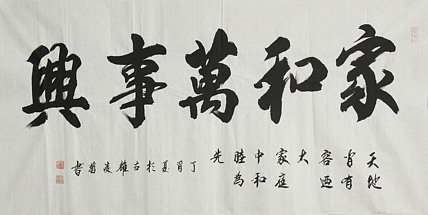 家和萬事興
天地
皆有
容迺
大
家庭
中和
睦為
先
丁酉夏於古雄書